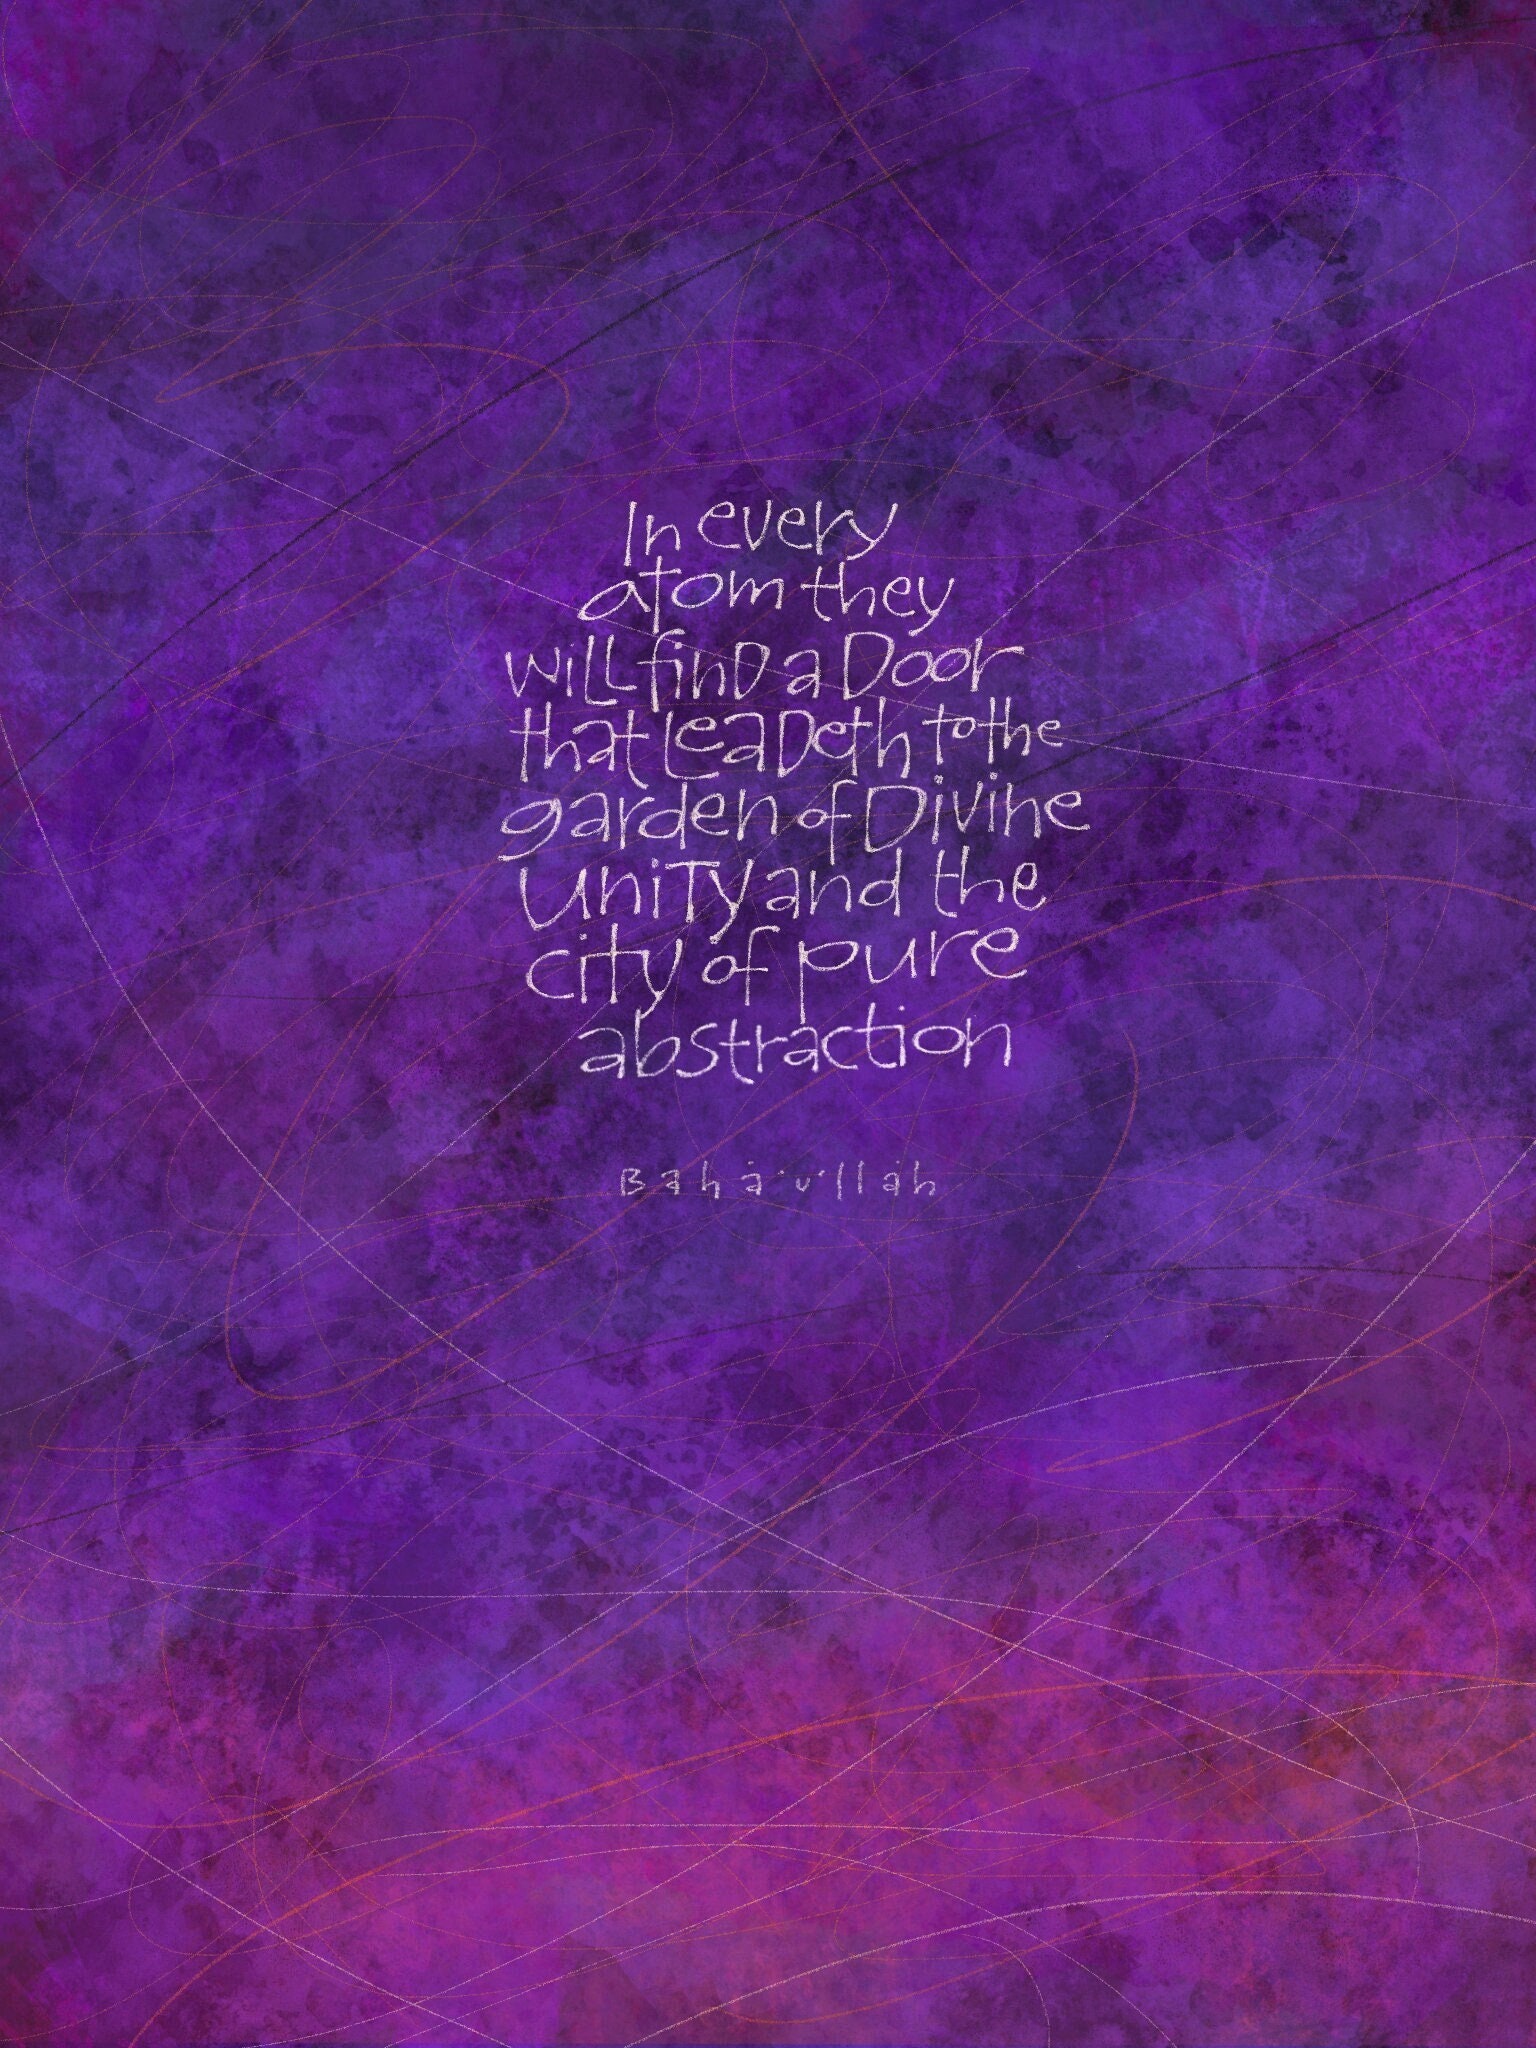 In every
atom they
will find a Door
that leadeth to the
garden of Divine
Unity and the
city of pure
abstraction
Bahá'u'lláh